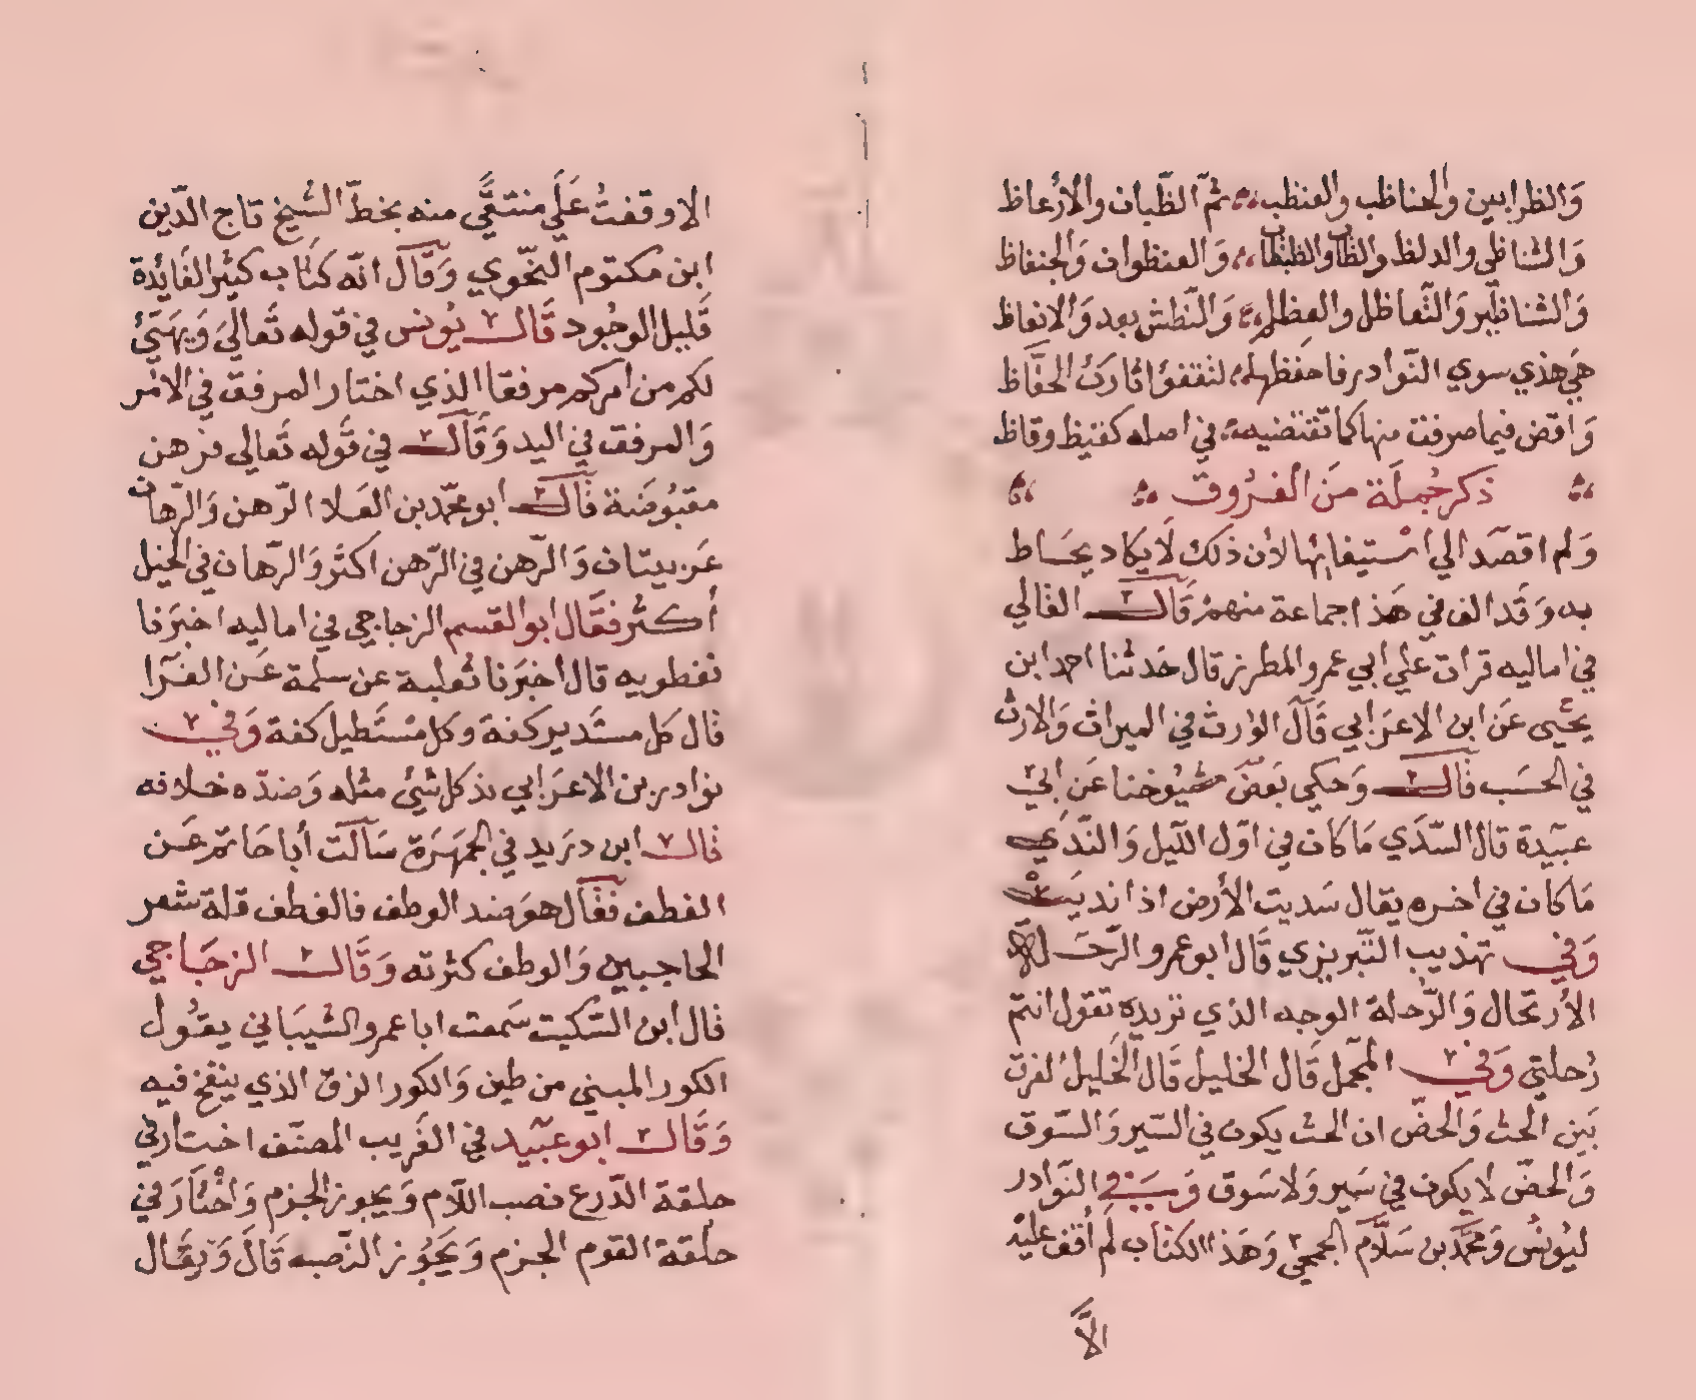 وَالظرابين والحناظب والعنظب ثمّ الظّبان والأرعاظ
وَالشناظي والدلظ والظاب والظبظاب وَالعنظوان وَالجنعاظ
وَالشناظير وَالتّعاظل والعظلم وَالنّظش بعد وَالانعاظ
هَي هذي سوي النّوادر فاحفظها لتقفوَا ثارك الحفّاظ
وَاقض فيما صرفت منها كما تقتضيه في اصله كقيظ وقاظ
ذكر جُملَة منَ الفرُوق
وَلم اقصَد الي استيفائها لأن ذلك لَا يكاد يحَاط
به وَقَد الف في هَذا جماعة منهم قَال القالي
في اماليه قرات علي ابي عمرو المطرز قال حَدثنا احمد ابن
يحْيى عَن ابن الاعرَابي قَالَ الوَرث في الميراث وَالارث
في الحسَب قَال وَحكي بَعضَ شيُوخنا عَن ابي
عبَيدة قال السّدَي مَا كان في اوّل الليل وَالنّدَي
مَا كان في اخره يقال سَديت الأرض اذا نديَت
وَفي تهذيب التّبريزي قَال ابو عمرو الرّحَلة
الأرتحال وَالرّحلة الوجه الذي تريده تقول انتم
رُحلتي وَفي المجمل قَال الخليل قَال الخَليل الفرق
بَين الحث وَالحضّ ان الحث يكون في السّير وَالسّوق
وَالحضّ لا يكون في سَير وَلا سَوق وَ في النّوادر
ليُونُس وَمحمَّد بن سَلَّام الجمحي وَهَذا الكتاب لم أقف عليه
الَّا
الا وقفتُ عَلَي منتقًي منه بخطّ الشيخ تاج الدّين
ابن مكتوم النّحوي وَقَالَ انّه كتَاب كثير الفَائدة
قَليل الوجُود قَال يُونس في قوله تَعاليَ وَيهَيّئ
لكم من امركم مرفقا الذي اختار المرفق في الامر
وَالمرفق في اليد وَقَالَ في قَوله تَعالى فرهن
مقبُوضَة قَالَ ابو محمّد بن العَلا الرّهن وَالرّهان
عَربيتان وَالرّهن في الرّهن اكثَر وَالرّهان في الخيل
أكثر فقَال ابو القسم الزجاجي في اماليه اخبَرنا
نفطويه قال اخبَرنا ثعلبة عن سلمة عَن الفَرّا
قال كَل مستَدير كفة وكل مسْتَطيل كفة وَفي
نوادر بن الاعرَابي ند كل شيْئ مثله وَضدّه خلافه
قال ابن دريد في الجمهَرة سَالَت أبا حَاتم عَن
الغطف فقَال هوَ ضد الوطف فالغطف قلة شعر
الحاجبين وَالوطف كثرته وَقَال الزجَاجي
قال ابن السّكيت سَمعت ابا عمرو الشيبَاني يقُول
الكور المبني من طين وَالكور الزق الذي ينفخ فيه
وَقَال ابو عبَيد في الغَريب المصنّف اختار في
حلقة الدّرع نصب اللّام وَيجوز الجزم وَاختَارَ في
حلقة القوم الجزم وَيَجُوز النّصبه قَالَ وَيقَال